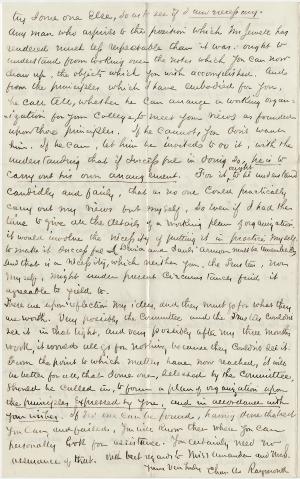 try Some one Else, so as to see if I am necessary.
Any man who aspires to the position which Mr Jewett has
rendered much less respectable than it was, ought to
understand from looking over the notes which you can now
draw up, the objects which you wish accomplished. And
from the principles, which I have embodied for you,
he can tell, whether he can arrange a working organ-
ization for your College to meet your views as founded
upon those principles. If he cannot, you don't want
him. If he can, let him be invited to do it, with the
understanding that if successful in doing so, he is to
carry out his own arrangement. For it ought to be understood
candidly and fairly, that as no one could practically
carry out my views but myself, So even if I had the
time to give all the details of a working plan of organization
it would involve the necessity of putting it in practice myself
to make it successful. David and Saul's armor must be remembered
and that is a necessity, which neither you, the Trustees, nor
myself, might under present circumstances find it
agreeable to yield to.
There are upon reflection my ideas, and they must go for what they
are worth. Very possibly the Committee and the Trustees would not
see it in that light, and very possibly after my three months
work, it would all go for nothing because they could not see it.
From the point to which matters have now reached, it will
be better for all, that Some one, selected by the Committee,
should be called in, to form a plan of organization upon
the principles expressed by you, and in accordance with
your wishes. If no one can be found, having done the best
you can and failed, you will know then where you can
personally look for assistance. You certainly need no
assurance of that. With best regards to Miss Amanda and Mrs
Yours Very truly Charles Raymond